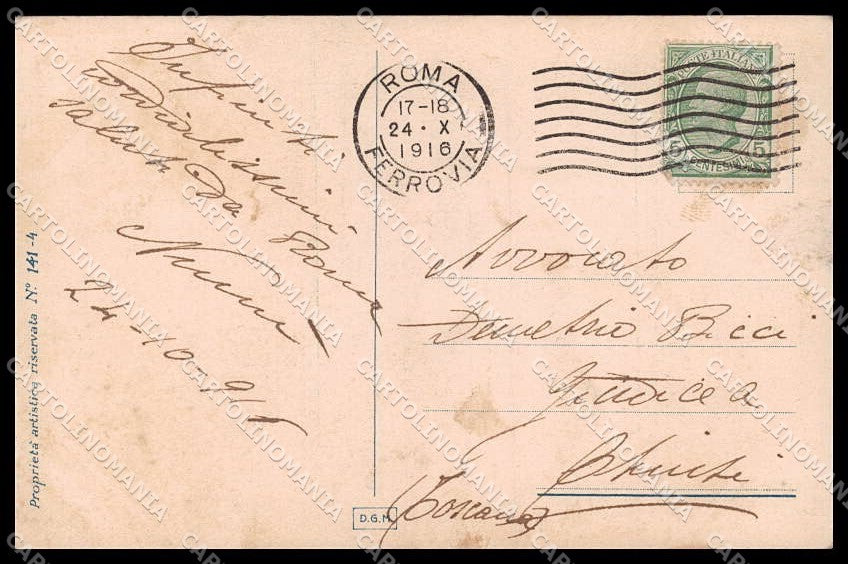 Infiniti
cordialissimi
saluti da Roma
24-10-916
Proprietà artistica riservata N° 141-4
D.G.M.
ROMA
17-18
24·X
1916
FERROVIA
POSTE ITALIANE
5 CENTESIMI 5
Avvocato
Demetrio Bicci
Giudice a
(Toscana)
CARTOLINOMANIA